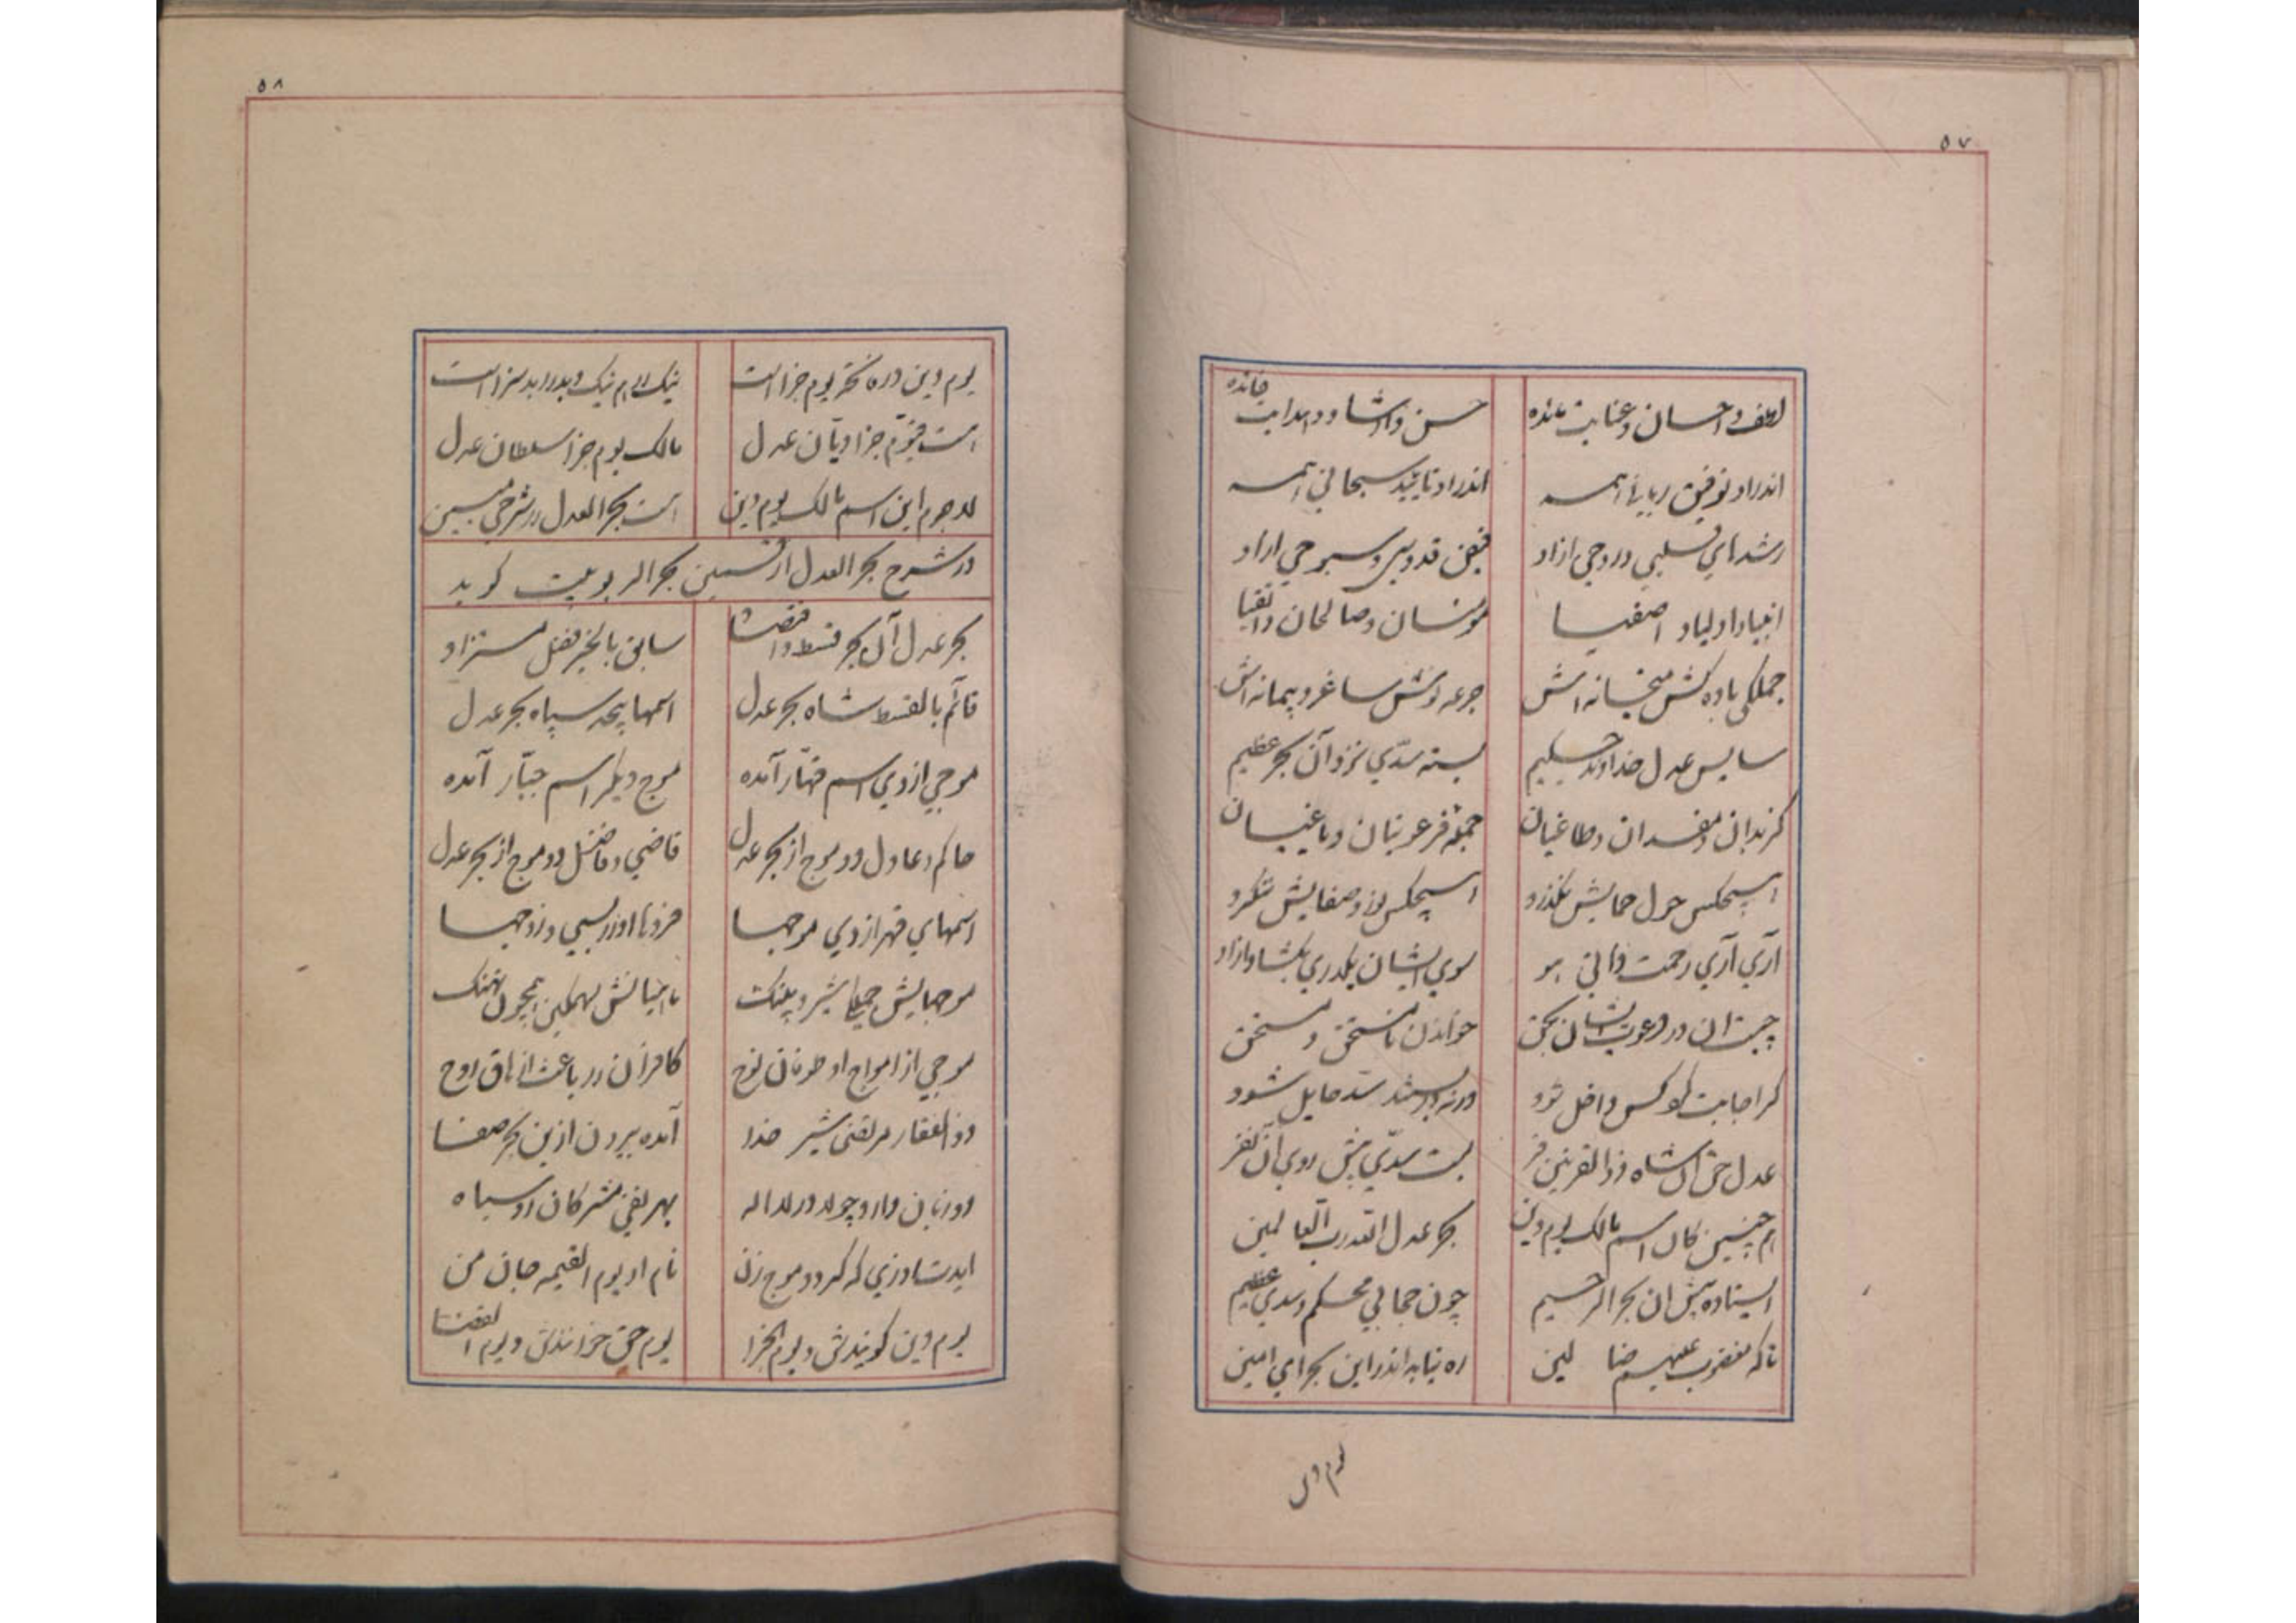 ۵۷
لطف و احسان و عنایت مانده حسن و ارشاد و هدایت خانده
اندر او توفیق ربانی همه اندر او تایید سبحانی همه
رشدهای قلبی و روحی ازاو فیض قدوسی و سبوحی ازاو
انبیا و اولیاء و اصفیا مومنان و صالحان و اتقیا
جملگی باده کش میخانه اش جرعه نوش ساغر و پیمانه اش
سایس عدل خداوند حکیم بسته سدّی نزد آن بحر عظیم
کز بدان و مفسدان و طاغیان جمله فرعونیان و باغیان
هیچکس حول حمایش نگذرد هیچکس نور صفایش ننگرد
آری آری رحمت ذاتی هو سوی ایشان بگذری بگشاد ازاو
چیست ان در دعوت ایشان بحق خواندن نامستحق و مستحق
کر اجابت کرد کس داخل شود ورنه در بستند سد حایل شود
عدل حق آن شاه ذوالقرنین فر بست سدّی پیش روی آن نفر
هم چنین کان اسم مالک یوم دین بحر عدل الله رب العالمین
ایستاده پیش ان بحر الرحیم چون حجابی محکم و سدی عظیم
تا که مغضوب علیهم ضالین ره نیابد اندر این بحر ای امین
یوم دین
۵۸
یوم دین در نکته یوم جزا است نیک را هم نیک و بد را بد سزا است
است قیّوم جزا دیّان عدل مالک یوم جزا سلطان عدل
لاجرم این اسم مالک یوم دین است بحر العدل در شرحی مبین
در شرح بحر العدل از قسمین بحر الربوبیت گوید
بحر عدل آن بحر قسط و اقتضا سابق بالخیر فضل مستزاد
قائم بالقسط شاه بحر عدل اسمها بیحد سپاه بحر عدل
موجی از وی اسم قهّار آمده موج دیگر اسم جبّار آمده
حاکم و عادل دو موج از بحر عدل قاضی و فاضل دو موج از بحر عدل
اسمهای قهر از وی موجها فردها او را بسی و زوجها
موجهایش جمله شیر و پلنگ ماهیانش سهمگین همچون نهنگ
موجی از امواج او طوفان نوح کافران را باعث ازهاق روح
ذوالفقار مرتضی شیر خدا آمده بیرون ازین بحر صفا
دو زبان دارد چو لا در لا اله بهر نفی مشرکان رو سیاه
اید تا روزی که گردد موج زن نام او یوم القیمه جان من
یوم دین گویندش و یوم الجزا یوم حق خوانندش و یوم القضا